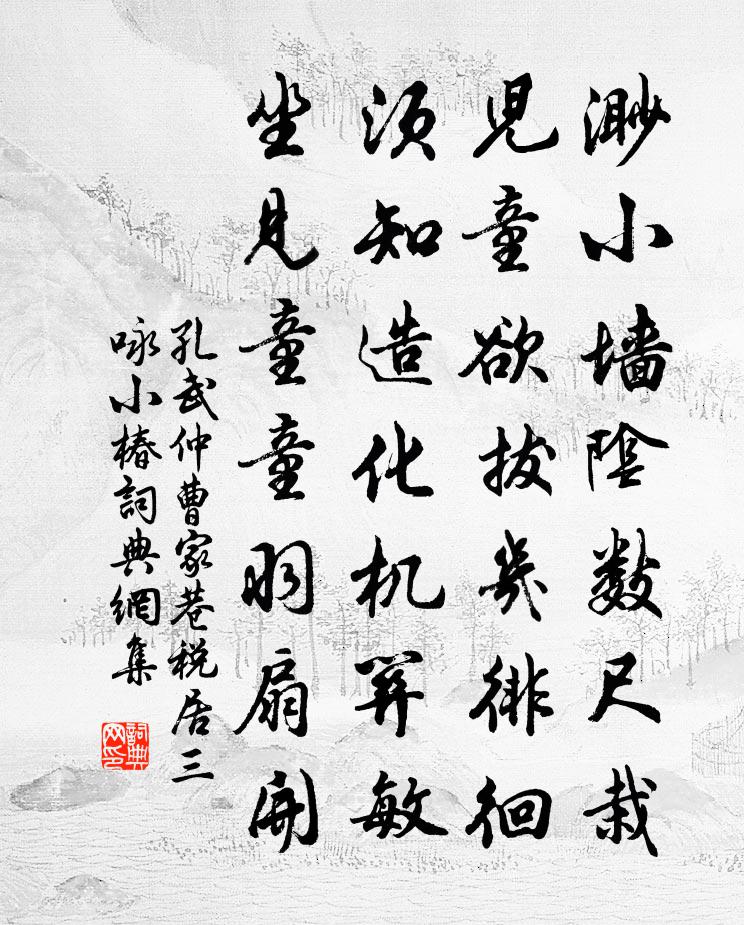 渺小墙陰数尺栽
児童欲拔几徘徊
须知造化机算敏
坐见童童羽扇開
孔武仲曹家巷税居三
咏小椿詞典網集
詞典
网